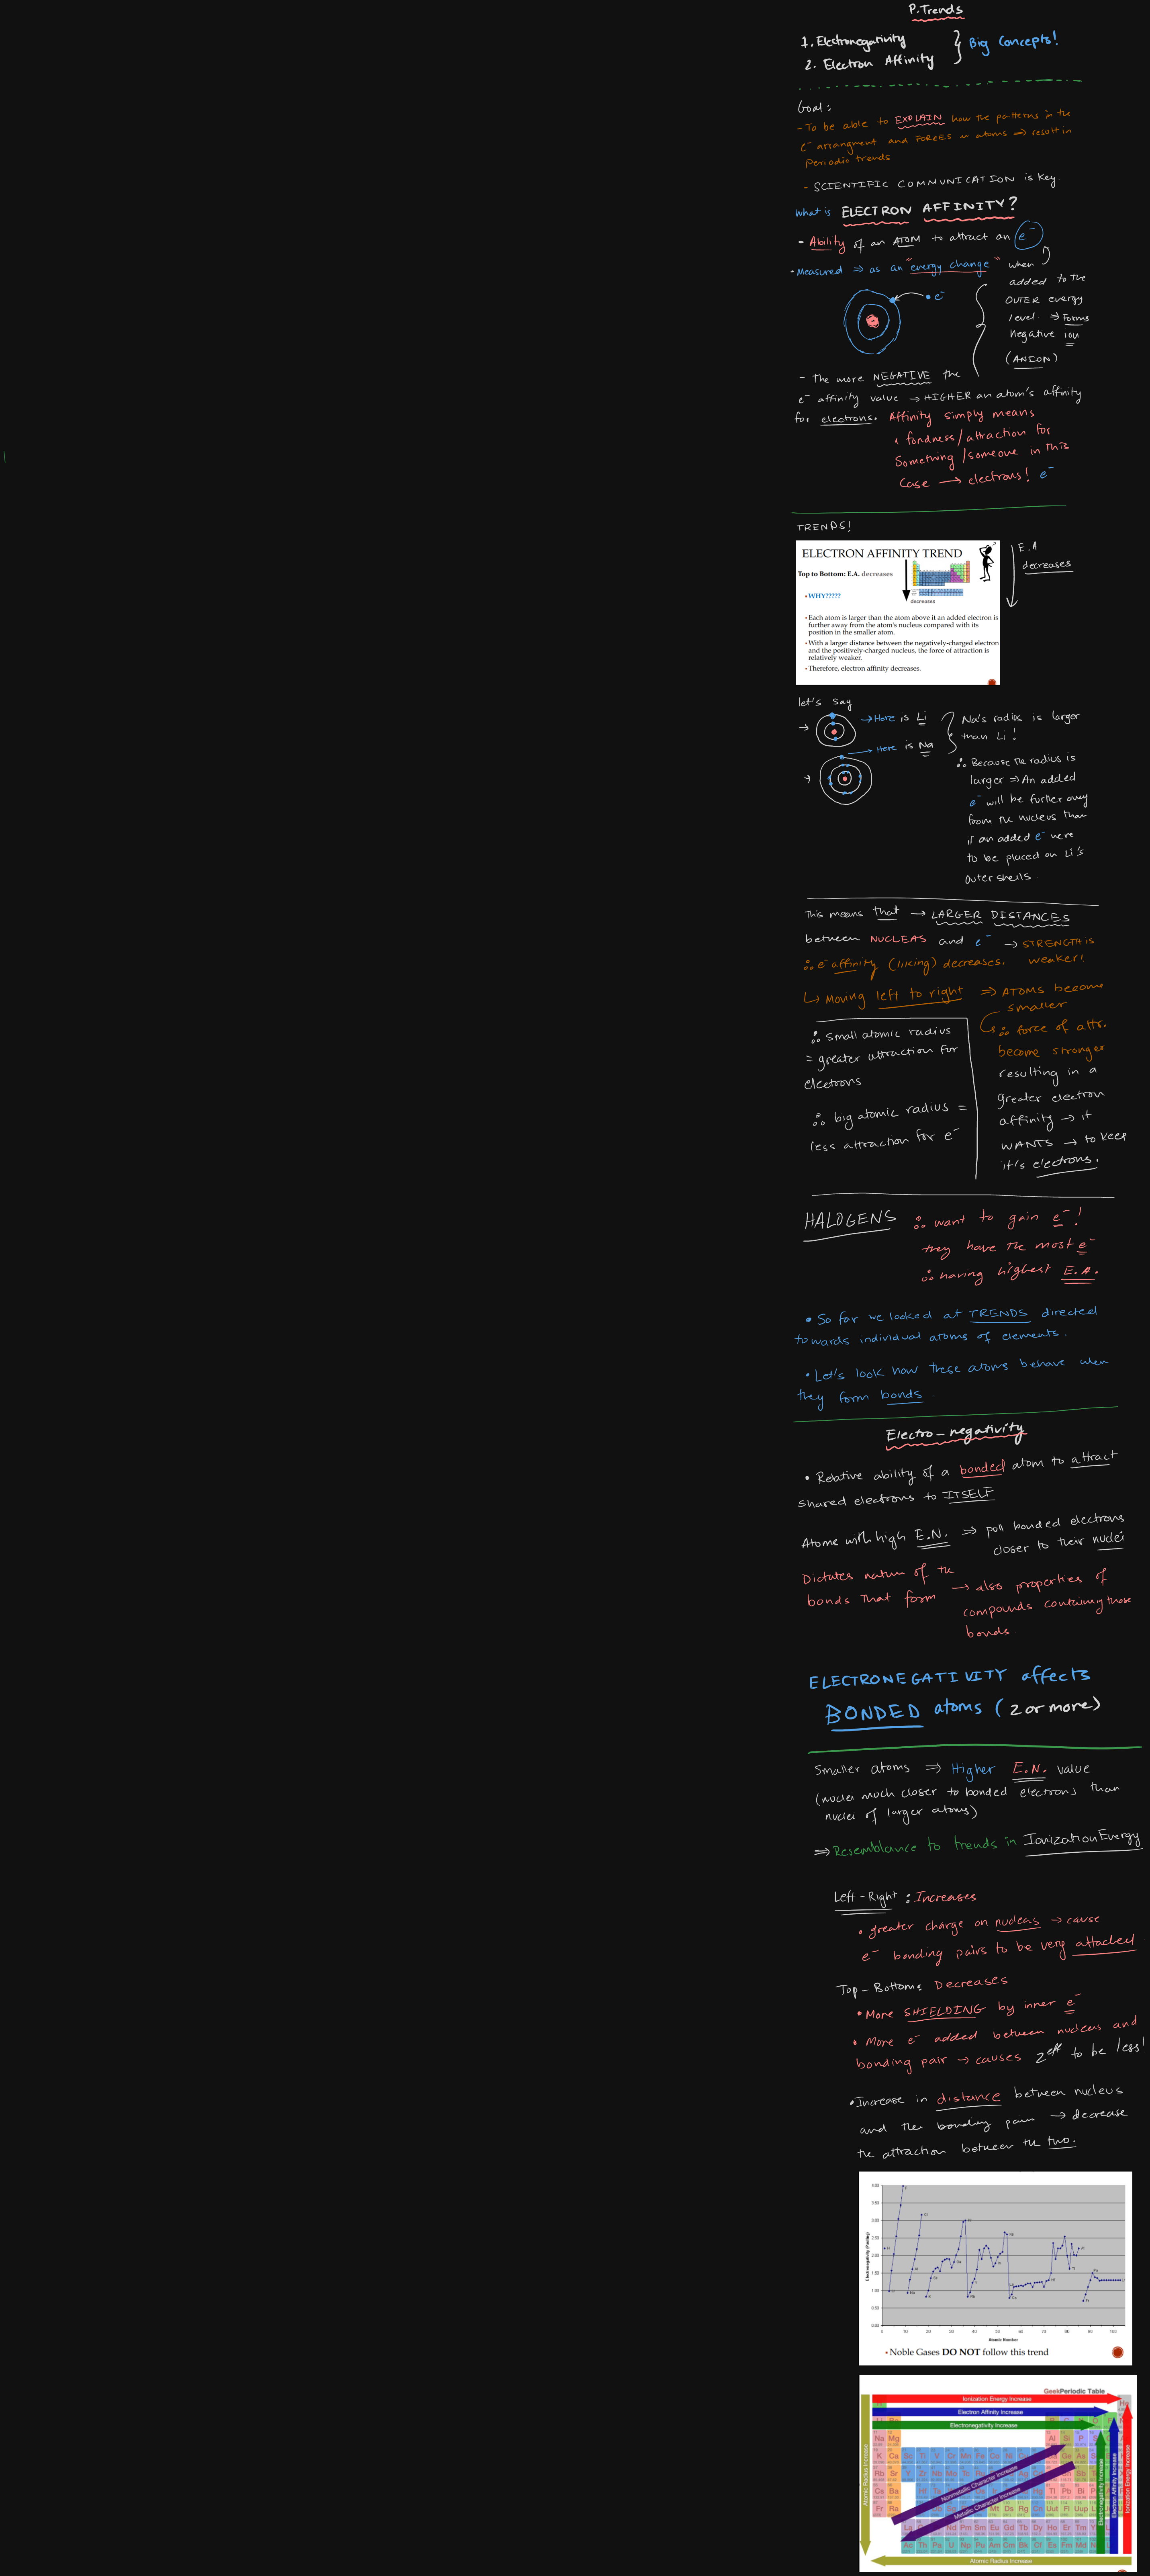 P.Trends
1. Electronegativity
2. Electron Affinity
Big Concepts!
Goal:
- To be able to EXPLAIN how the patterns in the
e⁻ arrangment and FORCES in atoms → result in
Periodic trends
- SCIENTIFIC COMMUNICATION is key.
what is ELECTRON AFFINITY?
• Ability of an ATOM to attract an e⁻
• Measured ⇒ as an "energy change" when
added to the
OUTER energy
level. ⇒ Forms
negative ion
(ANION)
• e⁻
- The more NEGATIVE the
e⁻ affinity value → HIGHER an atom's affinity
for electrons. Affinity simply means
a fondness/attraction for
Something/someone in this
Case → electrons! e⁻
TRENDS!
ELECTRON AFFINITY TREND
Top to Bottom: E.A. decreases
decreases
• WHY?????
• Each atom is larger than the atom above it an added electron is
further away from the atom's nucleus compared with its
position in the smaller atom.
• With a larger distance between the negatively-charged electron
and the positively-charged nucleus, the force of attraction is
relatively weaker.
• Therefore, electron affinity decreases.
E.A
decreases
let's say
→ Here is Li
→ Here is Na
Na's radius is larger
than Li!
∴ Because the radius is
larger ⇒ An added
e⁻ will be further away
from the nucleus than
if an added e⁻ were
to be placed on Li's
outer shells.
This means that → LARGER DISTANCES
between NUCLEAS and e⁻ → STRENGTH is
weaker!
∴ e⁻ affinity (liking) decreases.
↳ Moving left to right ⇒ ATOMS become
smaller
∴ force of attr.
become stronger
resulting in a
greater electron
affinity → it
WANTS → to keep
it's electrons.
∴ small atomic radius
= greater attraction for
electrons
∴ big atomic radius =
less attraction for e⁻
HALOGENS ∴ want to gain e⁻!
they have the most e⁻
∴ having highest E.A.
• So far we looked at TRENDS directed
towards individual atoms of elements.
• Let's look how these atoms behave when
they form bonds.
Electro-negativity
• Relative ability of a bonded atom to attract
shared electrons to ITSELF
Atoms with high E.N. ⇒ pull bonded electrons
closer to their nuclei
Dictates nature of the
bonds that form → also properties of
compounds containing those
bonds.
ELECTRONEGATIVITY affects
BONDED atoms (2 or more)
Smaller atoms ⇒ Higher E.N. value
(nuclei much closer to bonded electrons than
nuclei of larger atoms)
⇒ Resemblance to trends in Ionization Energy
Left-Right: Increases
• greater charge on nucleas → cause
e⁻ bonding pairs to be very attached
Top-Bottom: Decreases
• More SHIELDING by inner e⁻
• More e⁻ added between nucleus and
bonding pair → causes Zeff to be less!
• Increase in distance between nucleus
and the bonding pair → decrease
the attraction between the two.
Electronegativity (Pauling)
4.00
3.50
3.00
2.50
2.00
1.50
1.00
0.50
0.00
0 10 20 30 40 50 60 70 80 90 100
Atomic Number
• Noble Gases DO NOT follow this trend
GeekPeriodic Table
Ionization Energy Increase
Electron Affinity Increase
Electronegativity Increase
Nonmetallic Character Increase
Metallic Character Increase
Atomic Radius Increase
Electronegativity Increase
Electron Affinity Increase
Ionization Energy Increase
Na Mg Al Si P
K Ca
Rb Sr
Cs Ba Tl Pb Bi
Fr Ra Mt Ds Rg Cn Uut Fl Uup
Nd Pm Sm Eu Gd Tb Dy Ho Er Tm
Th Pa U Np Pu Am Cm Bk Cf Es Fm Md
Atomic Radius Increase